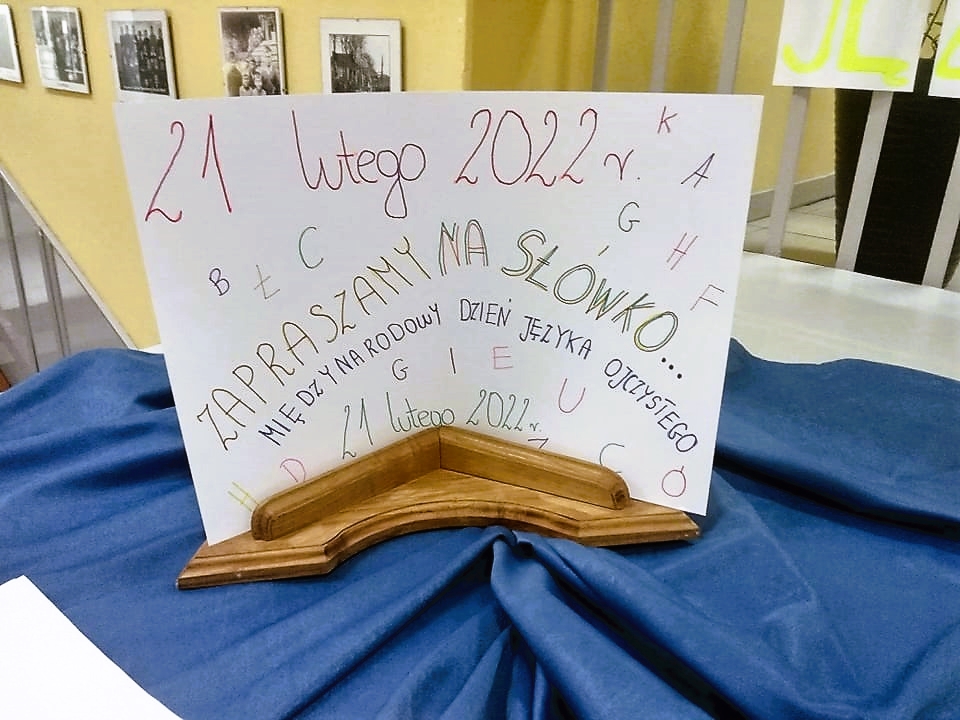 21 lutego 2022 r.
K
A
G
H
F
B Ł C
ZAPRASZAMY NA SŁÓWKO...
MIĘDZYNARODOWY DZIEŃ JĘZYKA OJCZYSTEGO
G I E U
21 lutego 2022 r.
H D C Ó
JĘ